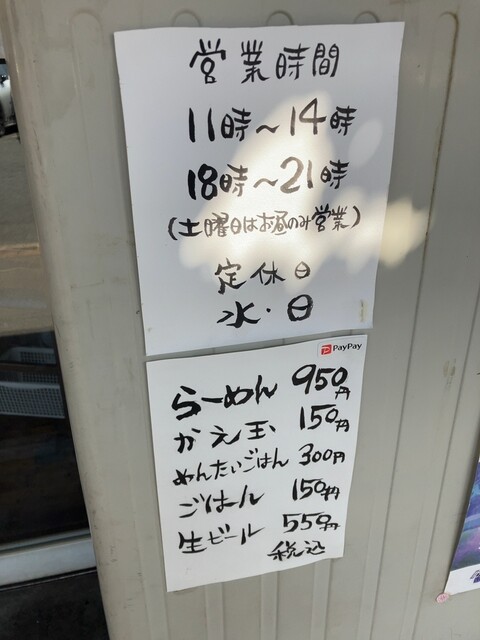 営業時間
11時～14時
18時～21時
(土曜日はお昼のみ営業)
定休日
水・日
PayPay
らーめん 950円
かえ玉 150円
めんたいごはん 300円
ごはん 150円
生ビール 550円
税込